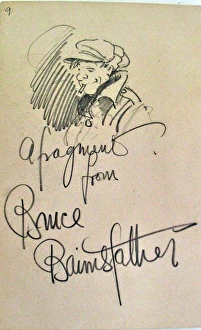 9
A fragment
from
Bruce
Bairnsfather